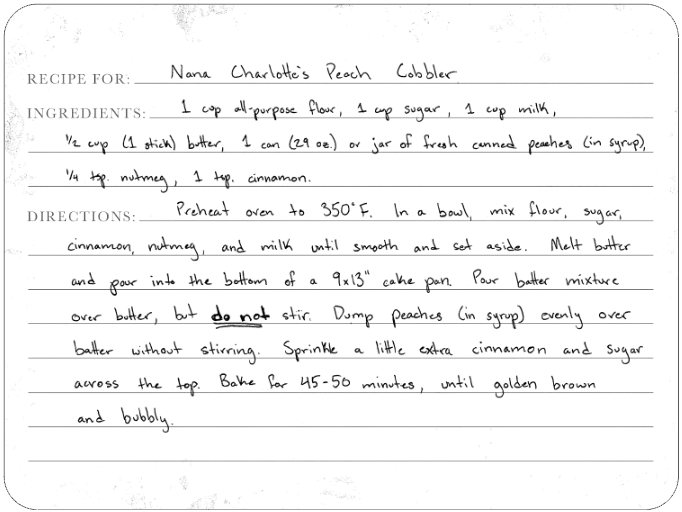 RECIPE FOR: Nana Charlotte's Peach Cobbler
INGREDIENTS: 1 cup all-purpose flour, 1 cup sugar, 1 cup milk,
1/2 cup (1 stick) butter, 1 can (29 oz.) or jar of fresh canned peaches (in syrup),
1/4 tsp. nutmeg, 1 tsp. cinnamon.
DIRECTIONS: Preheat oven to 350°F. In a bowl, mix flour, sugar,
cinnamon, nutmeg, and milk until smooth and set aside. Melt butter
and pour into the bottom of a 9x13" cake pan. Pour batter mixture
over butter, but do not stir. Dump peaches (in syrup) evenly over
batter without stirring. Sprinkle a little extra cinnamon and sugar
across the top. Bake for 45-50 minutes, until golden brown
and bubbly.